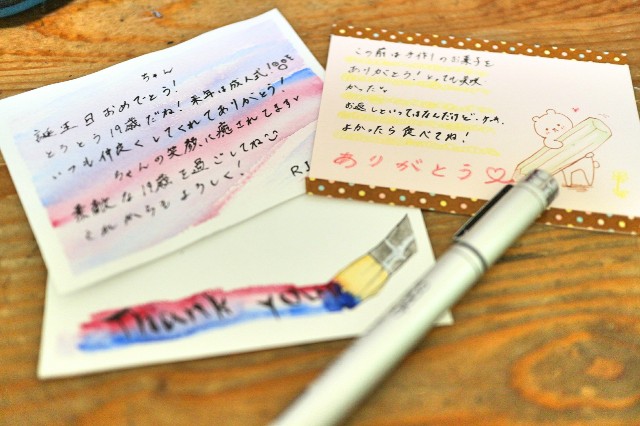 ちゃん
誕生日おめでとう!
とうとう19歳だね!来年は成人式!
いつも仲良くしてくれてありがとう!
ちゃんの笑顔に癒されてます
素敵な19歳を過ごしてね
これからもよろしく!
この前は手作りのお菓子を
ありがとう!とっても美味し
かった
お返しといってはなんだけど、ケーキ、
よかったら食べてね!
ありがとう
Thank you